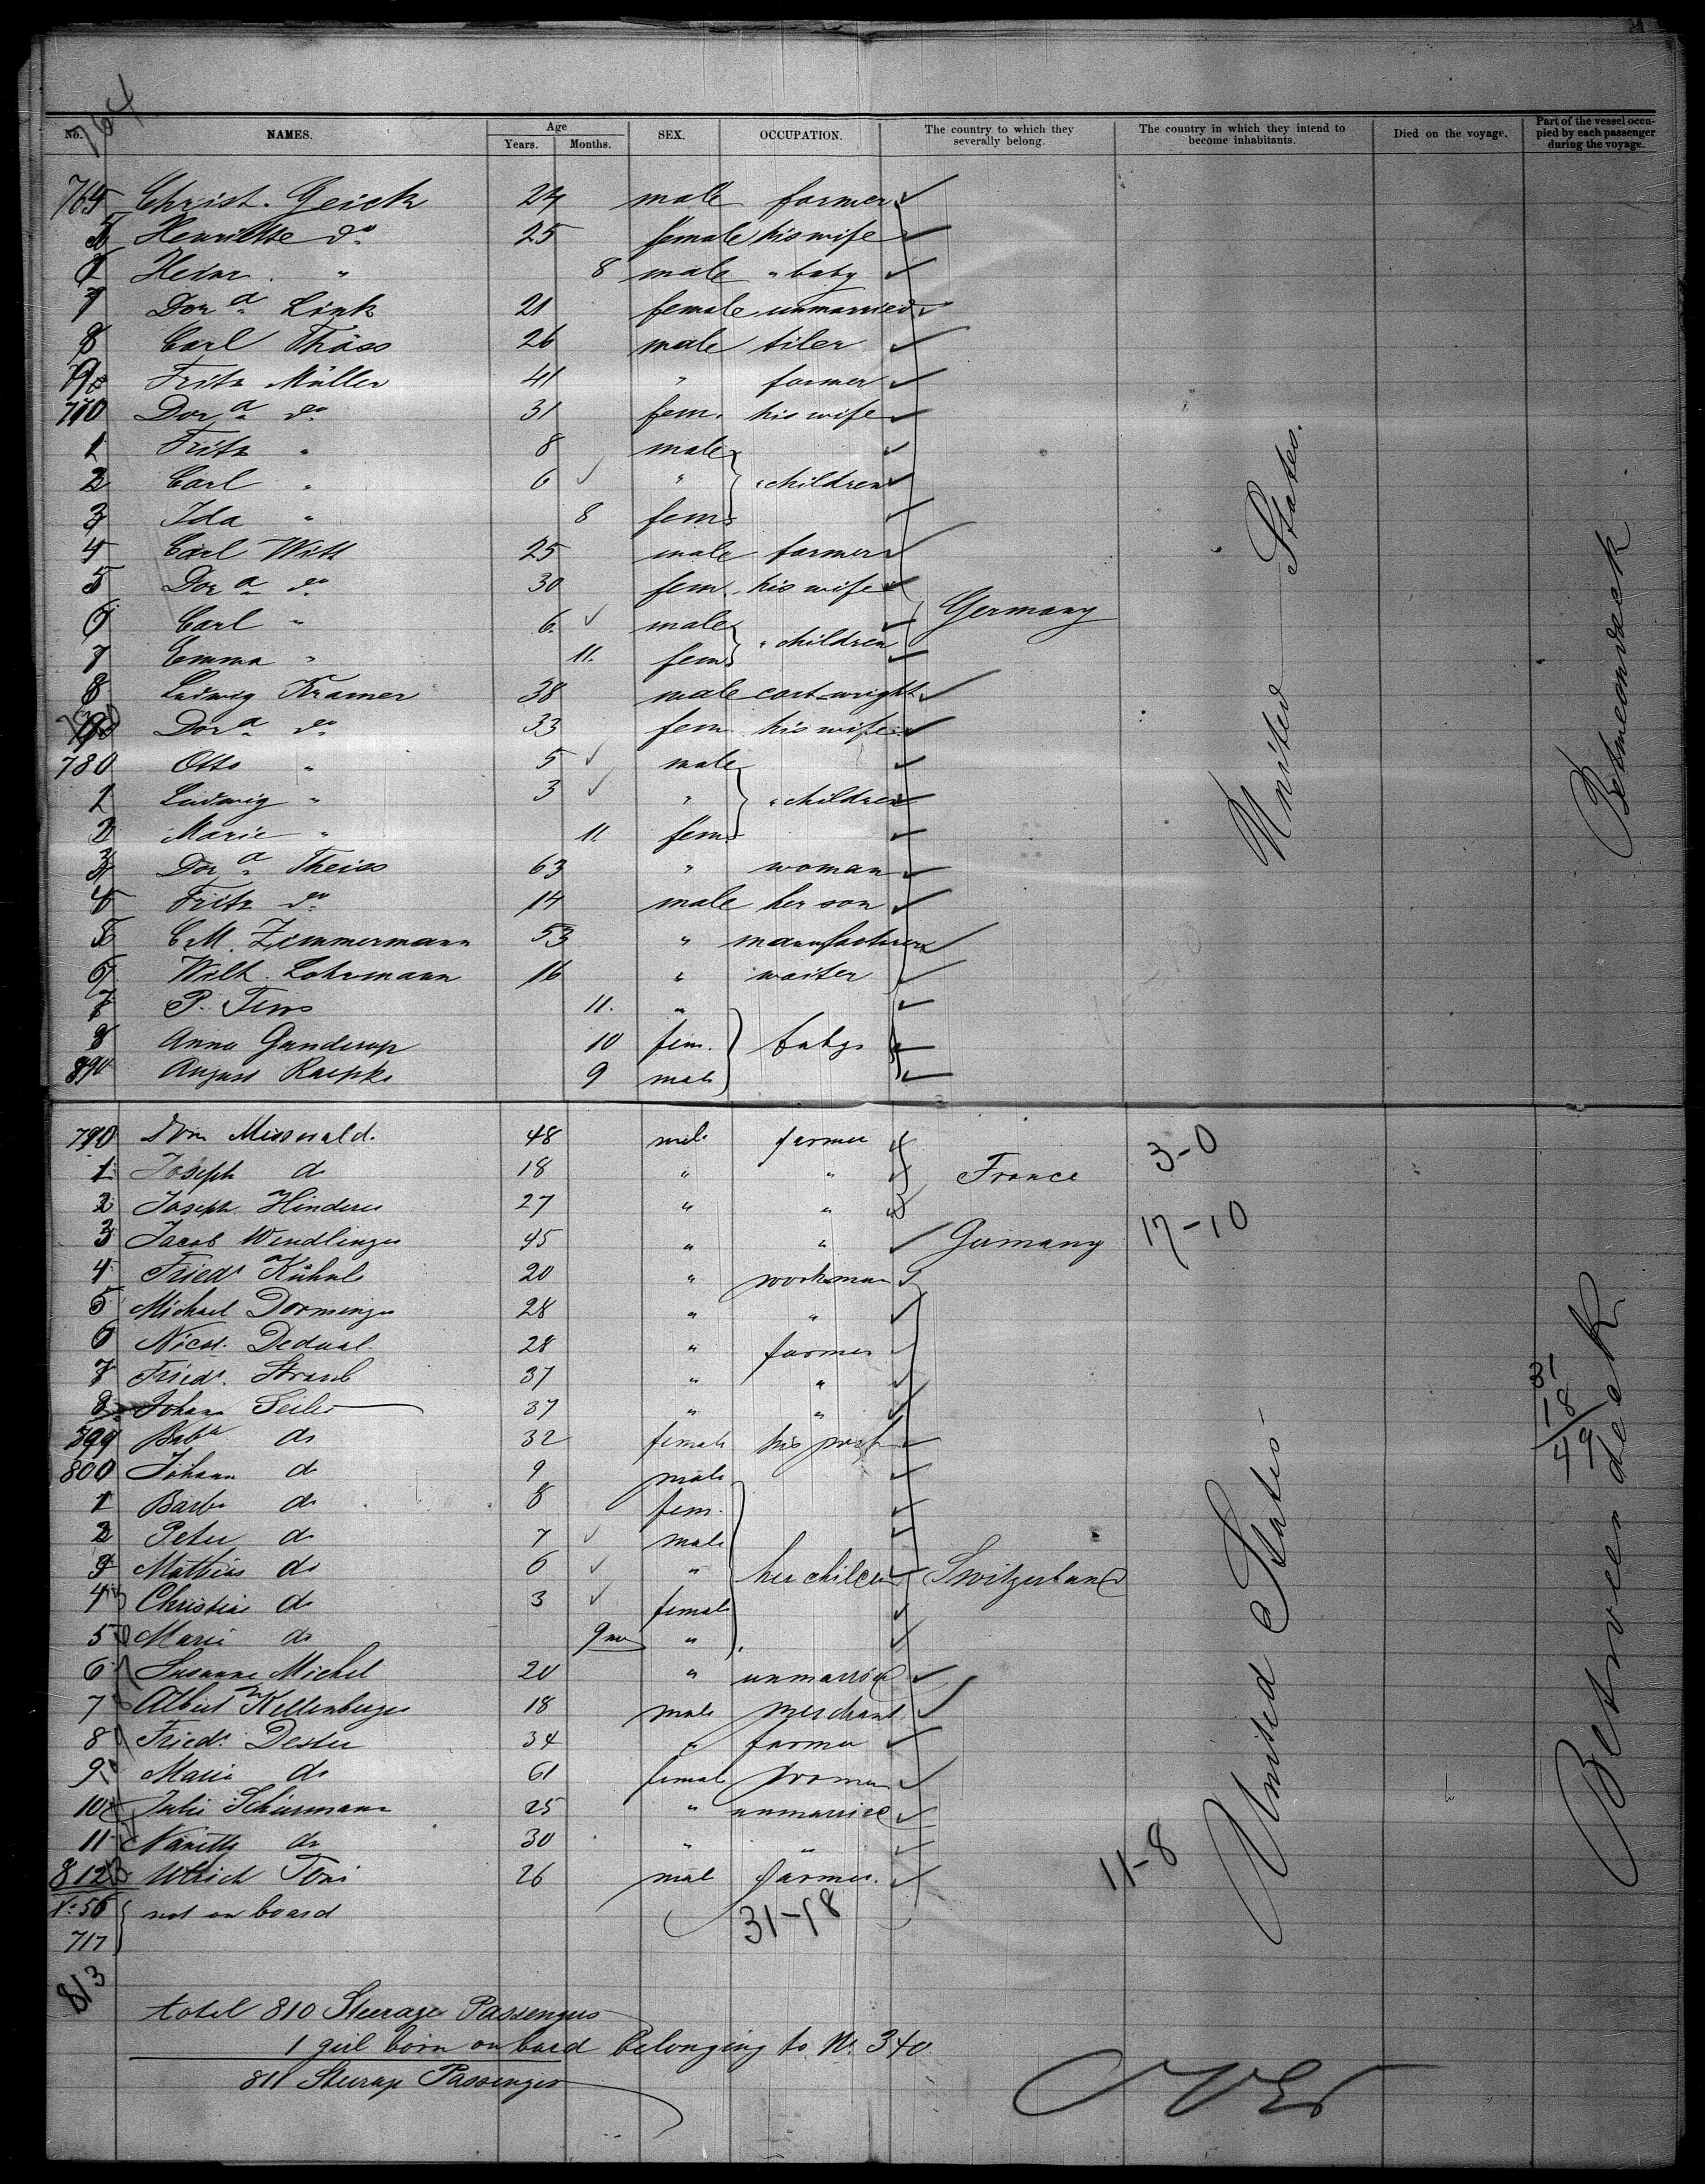 764
No. NAMES. Age Years. Months. SEX. OCCUPATION. The country to which they severally belong. The country in which they intend to become inhabitants. Died on the voyage. Part of the vessel occupied by each passenger during the voyage.
765 Christ. Geick 24 male farmer
Henriette do 25 female his wife
Heinr. " 8 male " baby
7 Dora Link 21 female unmarried
8 Carl Thöss 26 male tiler
9 Fritz Müller 41 " farmer
770 Dora do 31 fem. his wife
1 Fritz " 8 male
2 Carl " 6 " " children
3 Ida " 8 fem
4 Carl Witt 25 male farmer
5 Dora do 30 fem. his wife
6 Carl " 6 male Germany
7 Emma " 11. fem " children
8 Ludwig Kramer 38 male cart-wright
9 Dora do 33 fem his wife
780 Otto " 5 male
1 Ludwig " 3 " " children
2 Marie " 11. fem
3 Dora Theiss 63 " woman
4 Fritz do 14 male her son
5 C.M. Zimmermann 53 " manufacturer
6 Wilh. Lohrmann 16 " waiter
7 P. Tews 11. "
8 Anna Gunderup 10 fem. babys
August Raepke 9 male
United States.
Betweendeck
790 48 male farmer 3-0
1 Joseph do 18 " " France
2 Joseph Hinderer 27 " "
3 Jacob Wendlinger 45 " " Germany 17-10
4 Friedr Kühnle 20 " workman
5 Michael Dorminger 28 " "
6 Nicol. Dedual 28 " farmer
7 Friedr. Straub 37 " "
8 Johann Seiler 37 " "
799 Baba do 32 female his wife
800 Johann do 9 male
1 Barba do 8 fem.
2 Peter do 7 male
3 Mathias do 6 " her children Switzerland
4 Christine do 3 female
5 Marie do 9 mo "
6 Susanne Michel 20 " unmarried
7 Albert Kellenberger 18 male merchant
8 Friedr. Dester 34 " farmer
9 Maria do 61 female woman
10 Julie Schürmann 25 " unmarried
11 Nanette do 30 " "
812 Ulrich Toni 26 male farmer. 11-8
United States
Between deck
31
18
49
No 56 not on board 31-18
717
813
total 810 Steerage Passengers
1 girl born on bord belonging to No. 340
811 Steerage Passenger
OVER